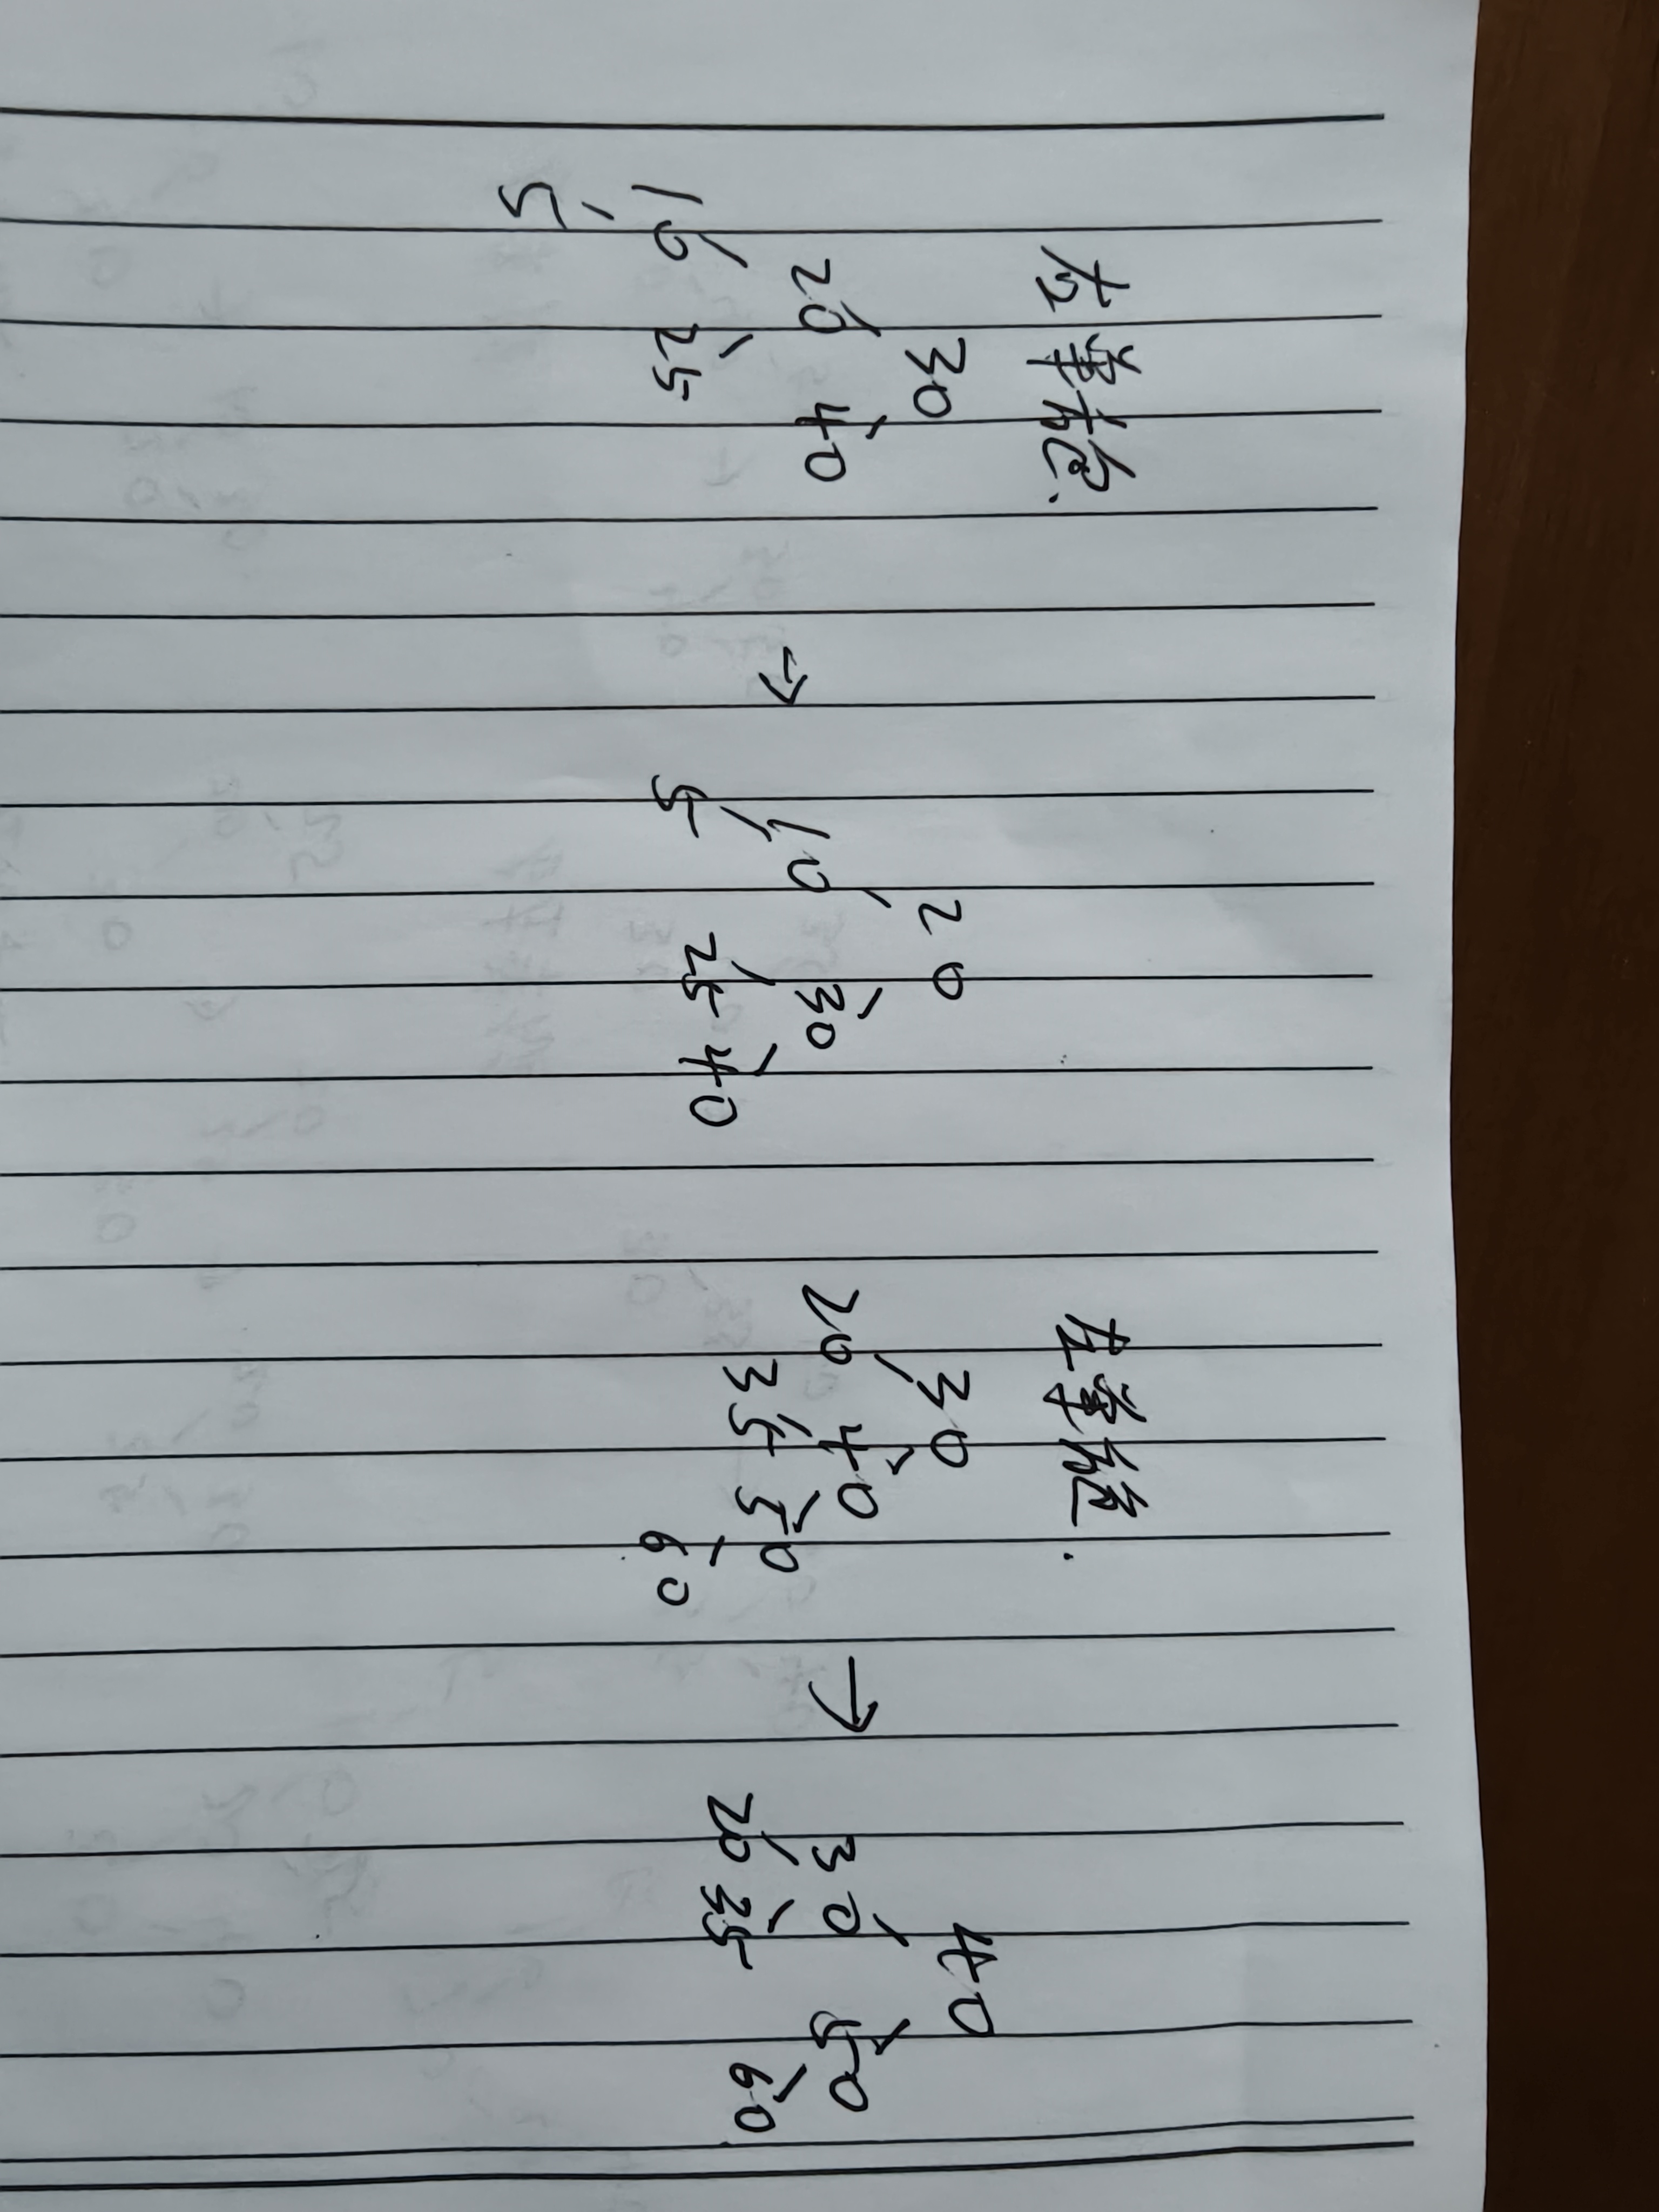 右单旋.
30
20 40
10 25
5
→
20
10 30
5 25 40
左单旋.
30
20 40
35 50
60
→
40
30 50
20 35 60